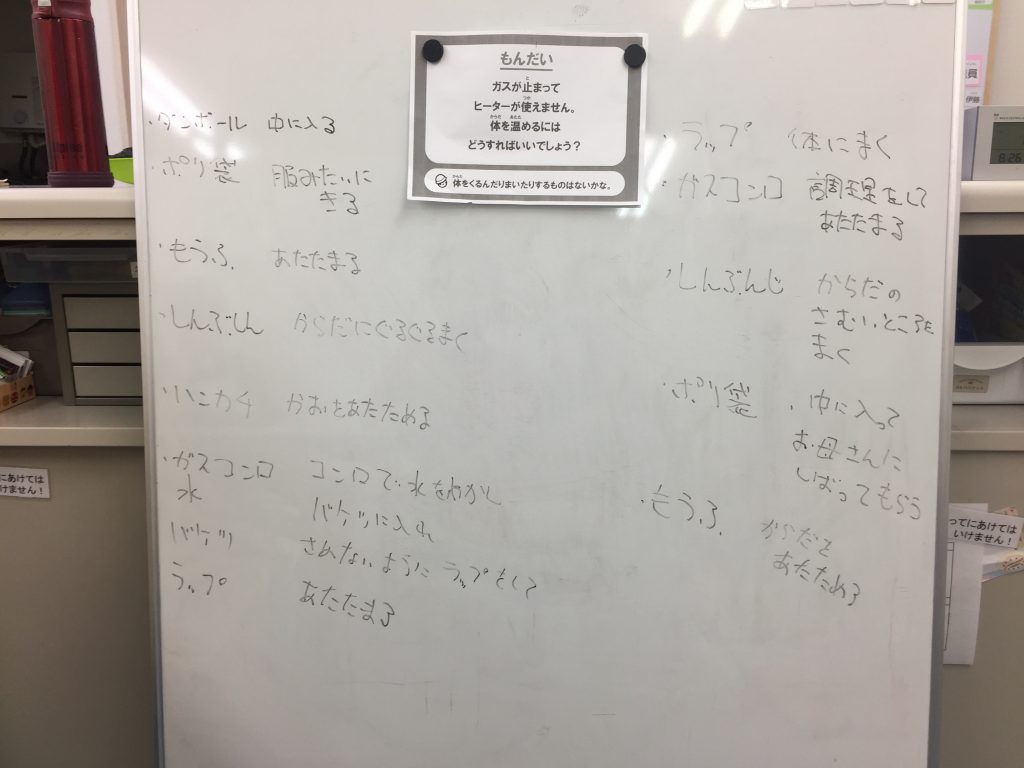 もんだい
ガスが止まって
ヒーターが使えません。
体を温めるには
どうすればいいでしょう？
体をくるんだりまいたりするものはないかな。
・ダンボール 中に入る
・ポリ袋 服みたいに
きる
・もうふ あたたまる
・しんぶしん からだにぐるぐるまく
・ハンカチ かおをあたためる
・ガスコンロ コンロで水をわかし
水 バケツに入れ
バケツ さめないようにラップをして
ラップ あたたまる
・ラップ 体にまく
・ガスコンロ 調理をして
あたたまる
・しんぶんし からだの
さむいところを
まく
・ポリ袋 中に入って
お母さんに
しばってもらう
・もうふ からだを
あたためる
にあけては
けません！
ってにあけては
いけません！
員
伊藤
8:26